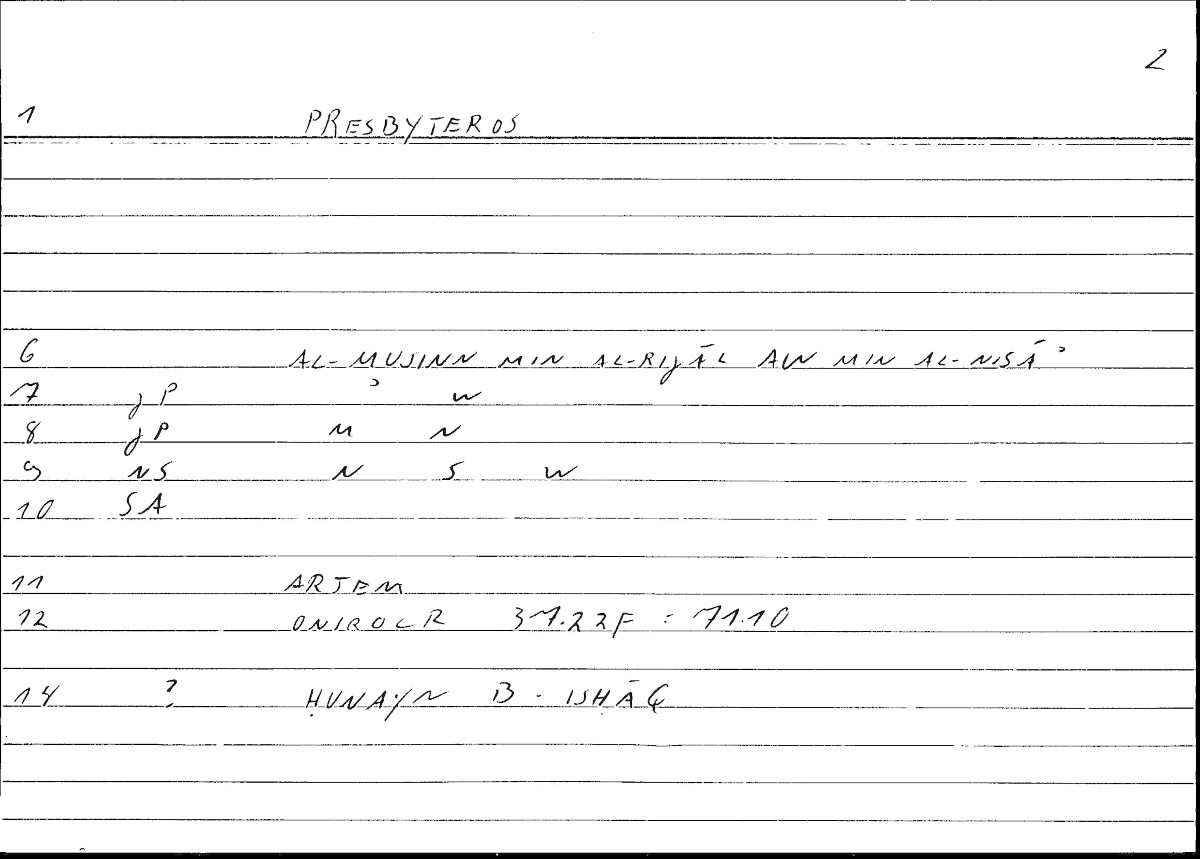 2
1 PRESBYTEROS
6 AL-MUSINN MIN AL-RIJĀL AW MIN AL-NISĀʾ
7 jP ʾ W
8 jP M N
9 NS N S W
10 SA
11 ARTEM
12 ONIROCR 37.22F : 71.10
14 ? ḤUNAYN B. ISḤĀQ